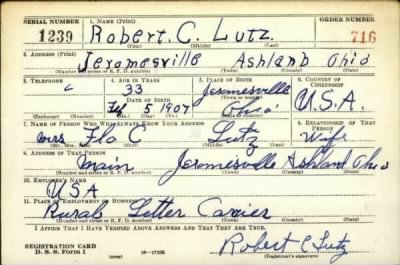 SERIAL NUMBER 1. NAME (Print) ORDER NUMBER
1239 Robert. C. Lutz. 716
(First) (Middle) (Last)
2. ADDRESS (Print)
Jeromesville Ashland Ohio
(Number and street or R. F. D. number) (Town) (County) (State)
3. TELEPHONE 4. AGE IN YEARS 5. PLACE OF BIRTH 6. COUNTRY OF CITIZENSHIP
33 Jeromesville
DATE OF BIRTH Ohio U.S.A.
Feb 5 1907
(Exchange) (Number) (Mo.) (Day) (Yr.) (State or country)
7. NAME OF PERSON WHO WILL ALWAYS KNOW YOUR ADDRESS 8. RELATIONSHIP OF THAT PERSON
Mrs. Flo C. Lutz Wife
(Mr., Mrs., Miss) (First) (Middle) (Last)
9. ADDRESS OF THAT PERSON
Main Jeromesville Ashland Ohio
(Number and street or R. F. D. number) (Town) (County) (State)
10. EMPLOYER'S NAME
USA
11. PLACE OF EMPLOYMENT OR BUSINESS
Rural Letter Carrier
(Number and street or R. F. D. number) (Town) (County) (State)
I AFFIRM THAT I HAVE VERIFIED ABOVE ANSWERS AND THAT THEY ARE TRUE.
REGISTRATION CARD Robert C Lutz
D. S. S. Form 1 (over) 16—17105 (Registrant's signature)